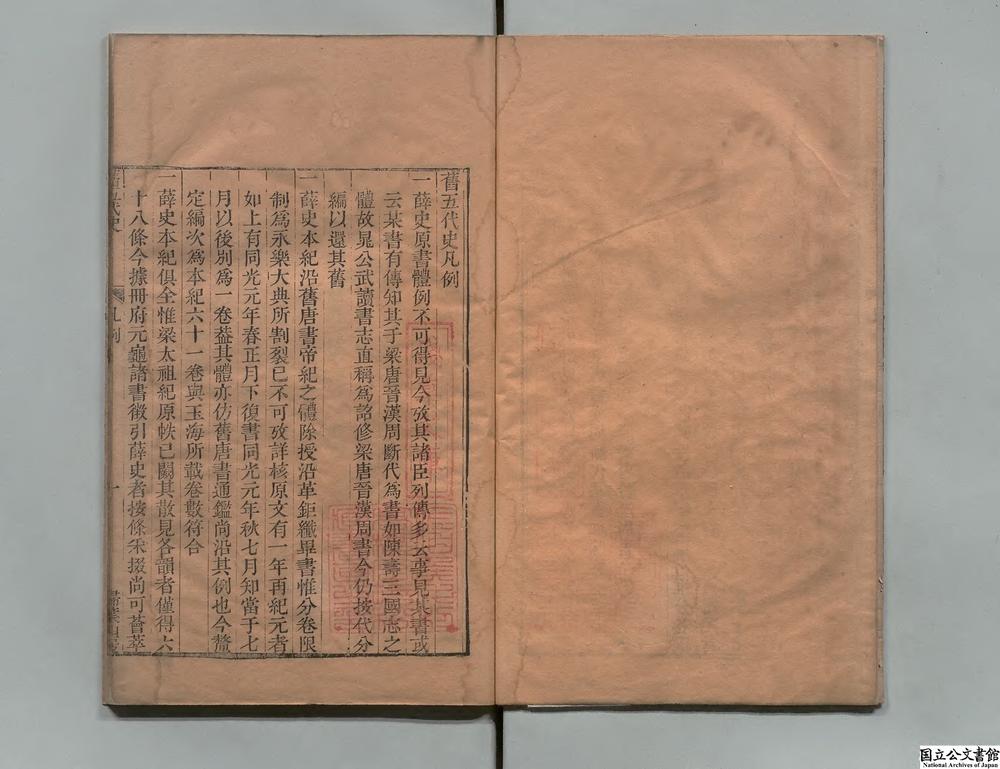 舊五代史凡例
一薛史原書體例不可得見今攷其諸臣列傳多云事見某書或
云某書有傳知其于梁唐晉漢周斷代為書如陳壽三國志之
體故晁公武讀書志直稱為詔修梁唐晉漢周書今仍按代分
編以還其舊
一薛史本紀沿舊唐書帝紀之體除授沿革鉅纖畢書惟分卷限
制為永樂大典所割裂已不可攷詳核原文有一年再紀元者
如上有同光元年春正月下復書同光元年秋七月知當于七
月以後別為一卷蓋其體亦仿舊唐書通鑑尚沿其例也今釐
定編次為本紀六十一卷與玉海所載卷數符合
一薛史本紀俱全惟梁太祖紀原帙已闕其散見各韻者僅得六
十八條今據冊府元龜諸書徵引薛史者按條采掇尚可薈萃
凡例
一
国立公文書館
National Archives of Japan